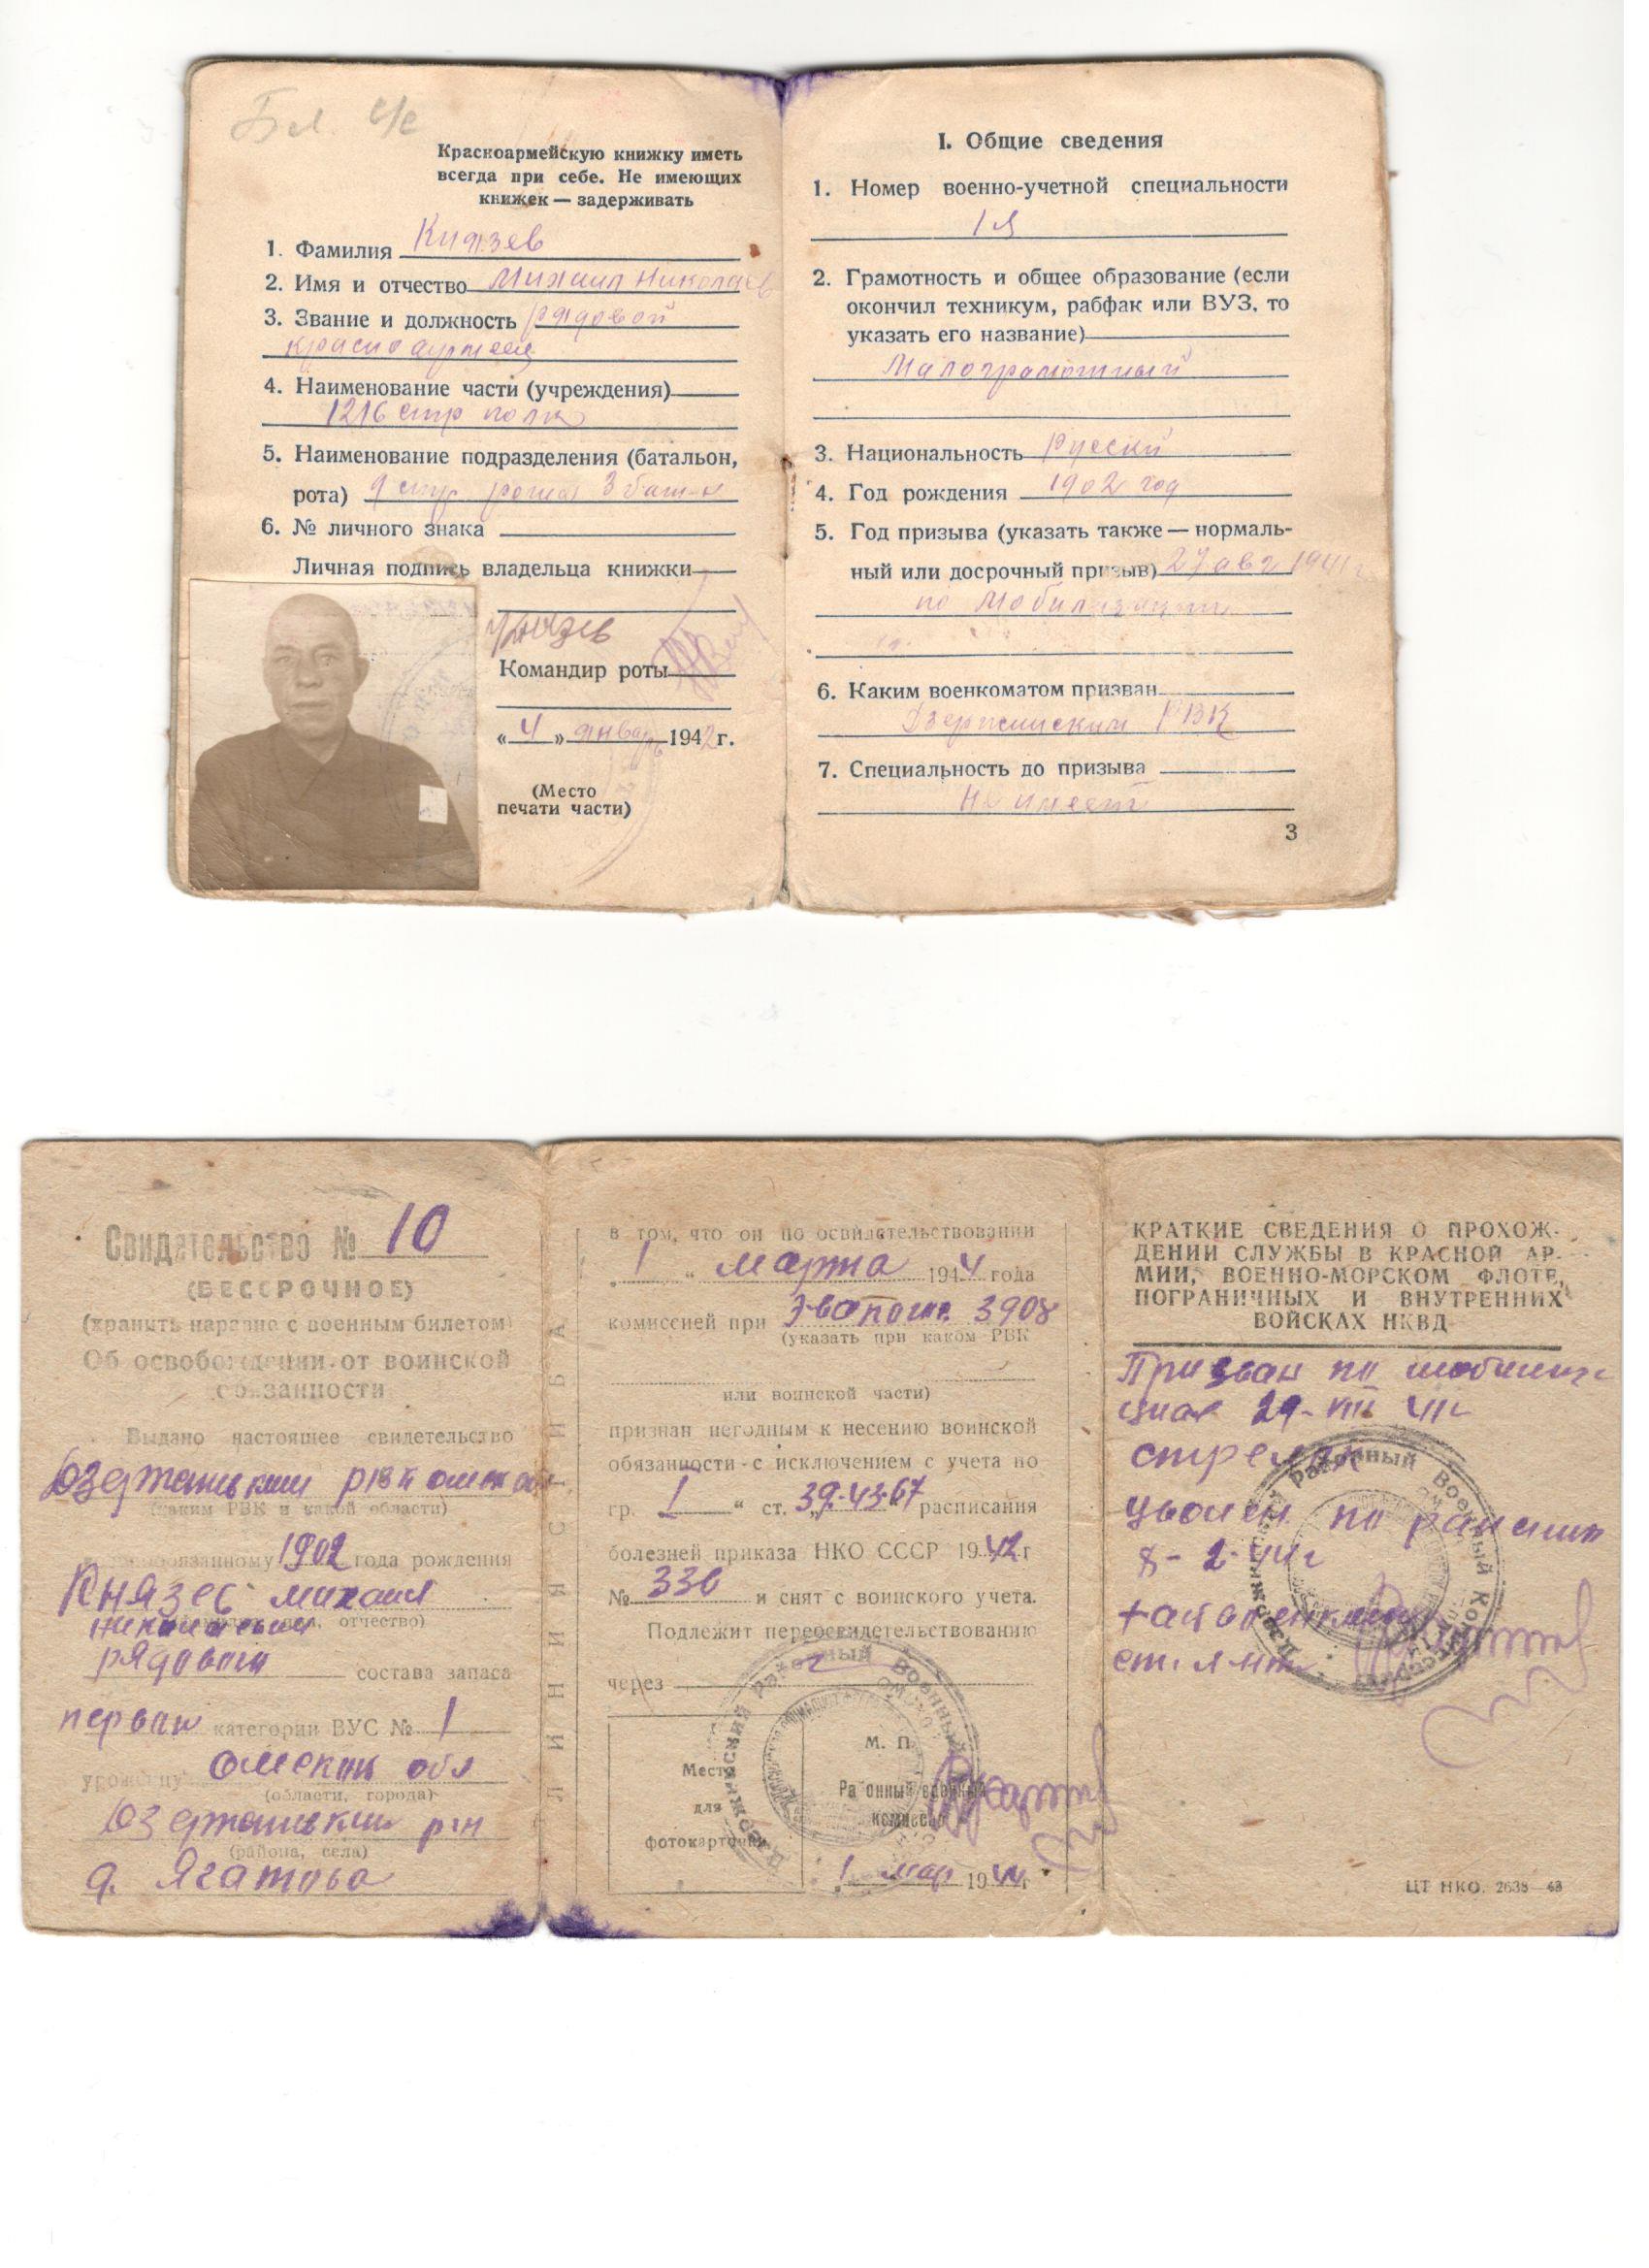 Бл. с/с
Красноармейскую книжку иметь
всегда при себе. Не имеющих
книжек — задерживать
1. Фамилия Князев
2. Имя и отчество Михаил Николаев
3. Звание и должность рядовой
красноармеец
4. Наименование части (учреждения)
1216 стр полк
5. Наименование подразделения (батальон,
рота) 9 стр рота 3 бат-н
6. № личного знака
Личная подпись владельца книжки
Князев
Командир роты
«4» январь 1942 г.
(Место
печати части)
I. Общие сведения
1. Номер военно-учетной специальности
1
2. Грамотность и общее образование (если
окончил техникум, рабфак или ВУЗ, то
указать его название)
Малограмотный
3. Национальность Руский
4. Год рождения 1902 год
5. Год призыва (указать также — нормаль-
ный или досрочный призыв) 27 авг 1941 г
по мобилизации
6. Каким военкоматом призван
Дзержинским РВК
7. Специальность до призыва
Не имеет
3
Свидетельство № 10
(БЕССРОЧНОЕ)
(хранить наравне с военным билетом)
Об освобождении от воинской
обязанности
Выдано настоящее свидетельство
РВК омск
(каким РВК и какой области)
военнообязанному 1902 года рождения
Князев михаил
отчество)
рядового состава запаса
первая категории ВУС № 1
уроженцу Омская обл
(области, города)
р-н
(района, села)
д.
ЛИНИЯ СГИБА
в том, что он по освидетельствовании
„1“ марта 1944 года
комиссией при Эвакогосп. 3908
(указать при каком РВК
или воинской части)
признан негодным к несению воинской
обязанности с исключением с учета по
гр. I “ ст. 39-43-67 расписания
болезней приказа НКО СССР 1942 г
№ 336 и снят с воинского учета.
Подлежит переосвидетельствованию
через
Место
для
фотокарточки
М. П.
Районный военный
комиссар
1 мар 1944 г
КРАТКИЕ СВЕДЕНИЯ О ПРОХОЖ-
ДЕНИИ СЛУЖБЫ В КРАСНОЙ АР-
МИИ, ВОЕННО-МОРСКОМ ФЛОТЕ,
ПОГРАНИЧНЫХ И ВНУТРЕННИХ
ВОЙСКАХ НКВД
Призван по мобилиза
ции 29-VIII 41 г
стрелок
уволен по ранению
8-2-44 г
Районный Военный Комиссариат
ЦТ НКО. 2638—43